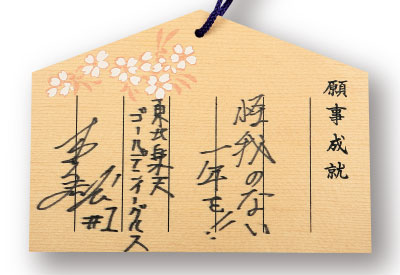 願事成就
怪我のない
一年を!!
東北楽天
ゴールデンイーグルス
#1